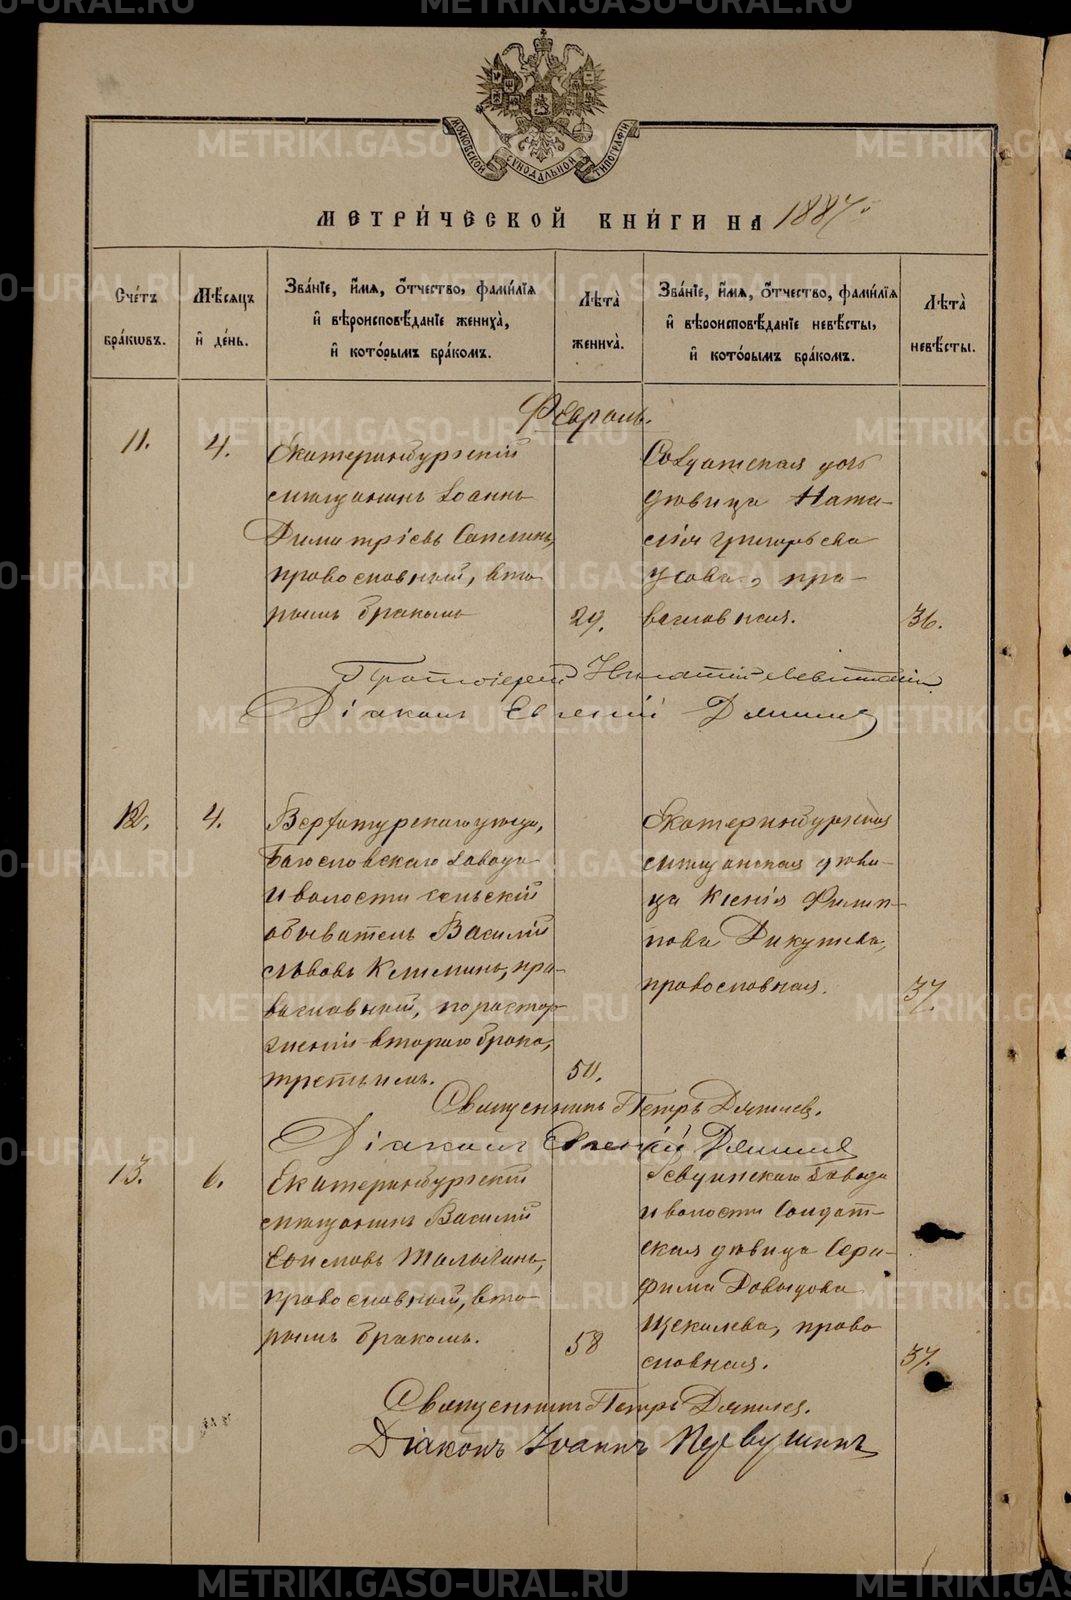 МОСКОВСКОЙ СѴНОДАЛЬНОЙ ТИПОГРАФІИ
МЕТРИ́ЧЕСКОЙ КНИ́ГИ НА 1887
Сче́тъ бра́кωвъ.
Мѣ́сяцъ и҆ де́нь.
Зва́нїе, и҆́мя, о҆́тчество, фами́лїя
и҆ вѣроисповѣ́данїе жениха̀,
и҆ кото́рымъ бра́комъ.
Лѣта̀ жениха̀.
Зва́нїе, и҆́мя, о҆́тчество, фами́лїя
и҆ вѣроисповѣ́данїе невѣ́сты,
и҆ кото́рымъ бра́комъ.
Лѣта̀ невѣ́сты.
Февраль.
11.
4.
Екатеринбургскій
мѣщанинъ Іоаннъ
Димитріевъ
православный, вто-
рымъ бракомъ
29.
Солдатская дочь
дѣвица Ната-
лія Григорьева
Усова, пра-
вославная.
36.
Протоіерей Игнатій Левитскій
Діаконъ Евгеній
12.
4.
Верхотурскаго уѣзда,
Богословскаго завода
и волости сельскій
обыватель Василій
Львовъ пра-
вославный, по растор-
женіи втораго брака,
третьимъ.
50.
Екатеринбургская
мѣщанская дѣви-
ца Ксенія Филип-
пова
православная.
37.
Священникъ Петръ
Діаконъ Евгеній
13.
6.
Екатеринбургскій
мѣщанинъ Василій
православный, вто-
рымъ бракомъ.
58
Ревдинскаго завода
и волости Солдат-
ская дѣвица Сера-
фима Давыдова
право
славная.
37.
Священникъ Петръ
Діаконъ Іоаннъ
METRIKI.GASO-URAL.RU